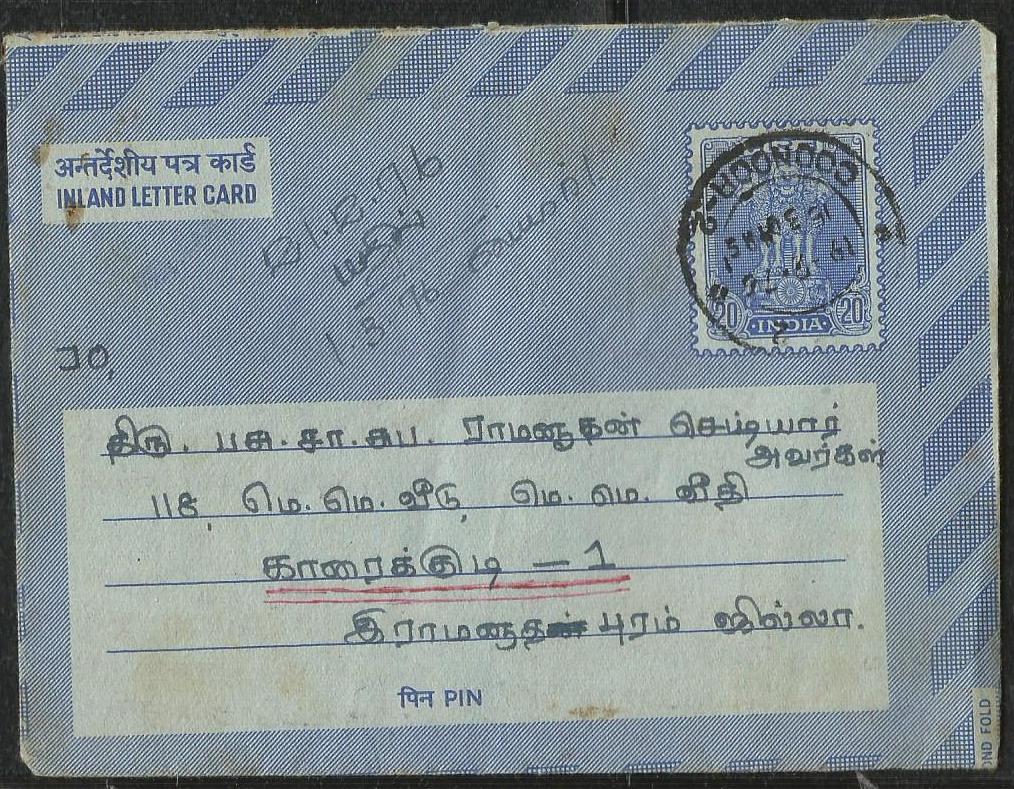 अन्तर्देशीय पत्र कार्ड
INLAND LETTER CARD
COONOOR-2
20 INDIA 20
1.3.76
திரு. பசு.சா.சுப. ராமனாதன் செட்டியார்
அவர்கள்
118, மெ.மெ.வீடு, மெ.மெ. வீதி
காரைக்குடி – 1
இராமனாதபுரம் ஜில்லா.
पिन PIN
OND FOLD